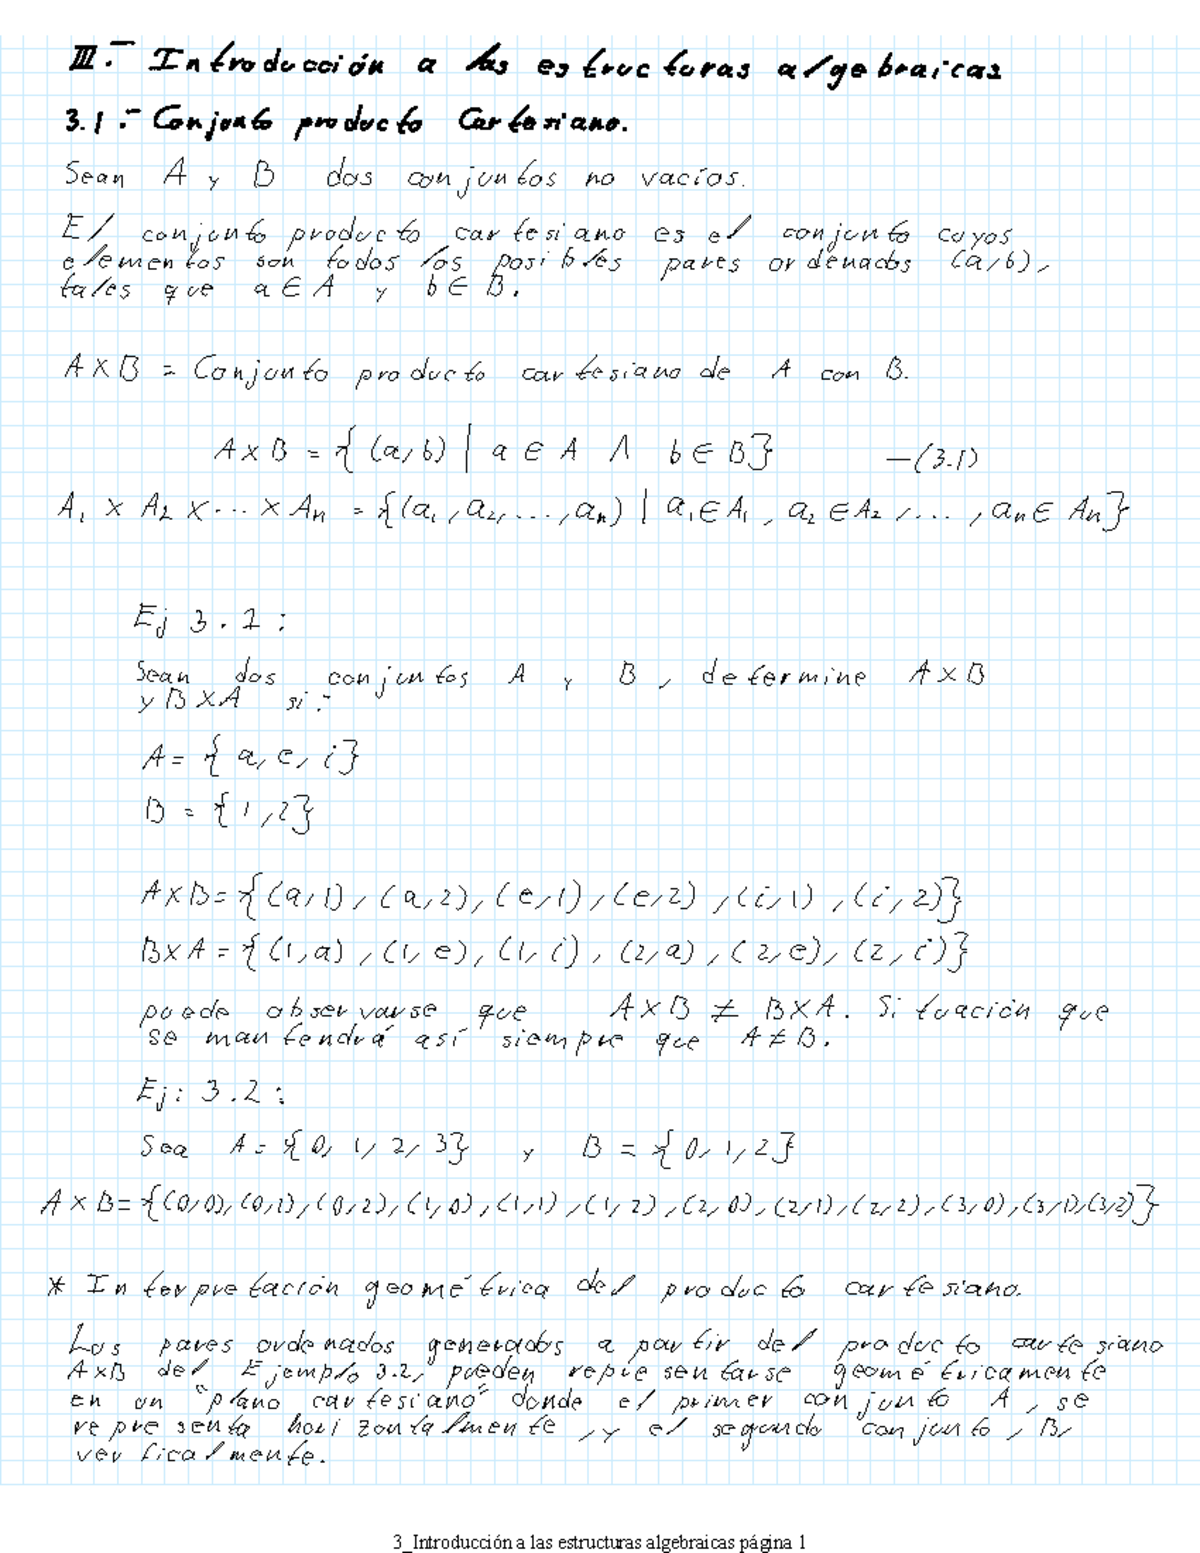 III.- Introducción a las estructuras algebraicas
3.1.- Conjunto producto Cartesiano.
Sean A y B dos conjuntos no vacíos.
El conjunto producto cartesiano es el conjunto cuyos
elementos son todos los posibles pares ordenados (a,b),
tales que a ∈ A y b ∈ B.
A X B = Conjunto producto cartesiano de A con B.
A x B = { (a,b) | a ∈ A ∧ b ∈ B} —(3.1)
A₁ x A₂ x ... x Aₙ = {(a₁, a₂, ..., aₙ) | a₁ ∈ A₁, a₂ ∈ A₂, ..., aₙ ∈ Aₙ}
Ej 3.1:
Sean dos conjuntos A y B, determine A x B
y B X A si:
A = { a, e, i}
B = {1,2}
A x B = {(a,1), (a,2), (e,1), (e,2), (i,1), (i,2)}
B x A = {(1,a), (1,e), (1,i), (2,a), (2,e), (2,i)}
puede observarse que A x B ≠ B X A. Situación que
se mantendrá así siempre que A ≠ B.
Ej: 3.2:
Sea A = {0, 1, 2, 3} y B = {0, 1, 2}
A x B = {(0,0), (0,1), (0,2), (1,0), (1,1), (1,2), (2,0), (2,1), (2,2), (3,0), (3,1), (3,2)}
* Interpretación geométrica del producto cartesiano.
Los pares ordenados generados a partir del producto cartesiano
A x B del Ejemplo 3.2, pueden representarse geométricamente
en un "plano cartesiano" donde el primer conjunto A, se
representa horizontalmente, y el segundo conjunto, B,
verticalmente.
3_Introducción a las estructuras algebraicas página 1